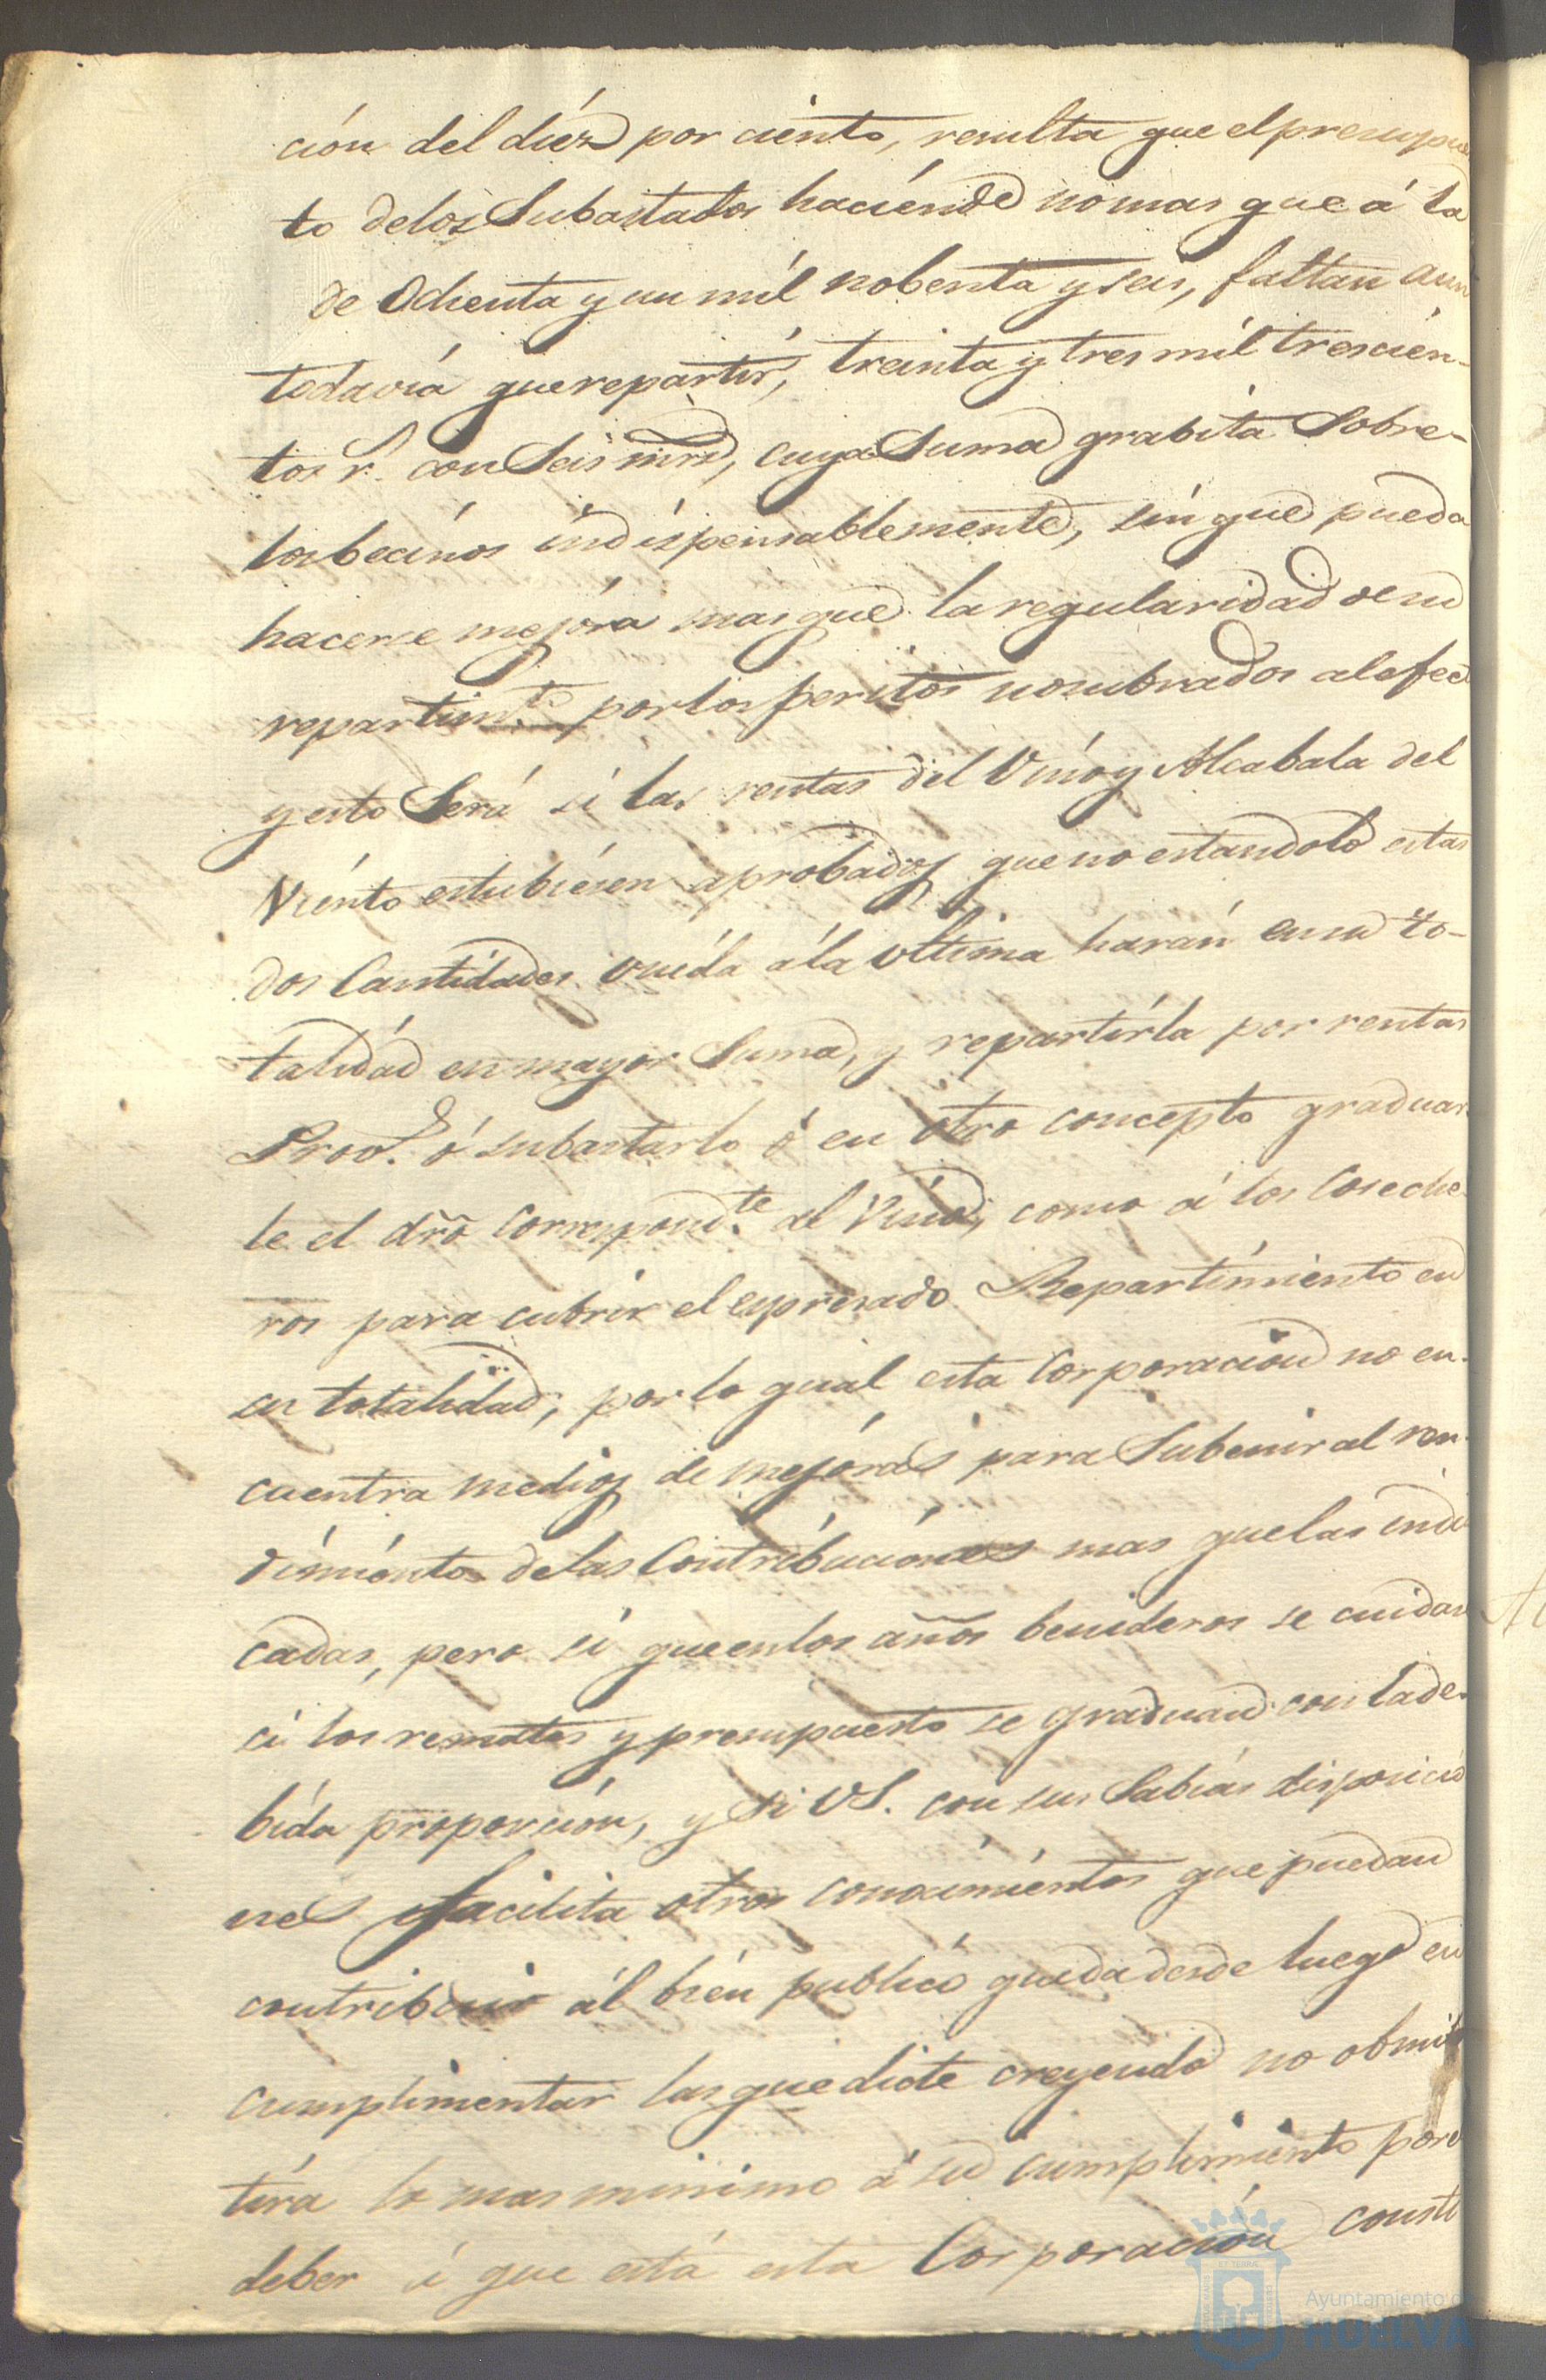 ción del diez por ciento, resulta que el presupues
to delos Subastados haciende no mas que á la
de Ochenta y un mil nobenta y seis, faltan aun
todavia que repartir, treinta y tres mil trescien-
tos r.s con Seis mrs, cuya Suma grabita Sobre-
los becinos indispensablemente, sin que pueda
hacerse mejora mas que la regularidad de su
repartim.to por los peritos nombrados al efect
y esto Será si las rentas del Vino y Alcabala del
Viento estubiesen aprobados que no estandolo estas
dos Cantidades unida á la ultima harán en su to-
talidad en mayor Suma, y repartirla por rentas
Prov.s ó subastarlo ó en otro concepto graduar
le el dro correspond.te al Vino, como á los Coseche
ros para cubrir el espresado Repartimiento en
su totalidad, por lo qual esta Corporacion no en-
cuentra medios de mejoras para Subenir al ren-
dimiento delas Contribuciones mas que las indi
cadas, pero si que en los años benideros se cuidan
si los remates y presupuesto se graduan con la de-
bida proporcion, y si VS. con sus Sabias disposicio
nes facilita otros conocimientos que puedan
contribuir ál bien publico queda desde luego en
cumplimentar las que dicte creyendo no obmi
tira lo mas minimo á su cumplimiento por el
deber á que está esta Corporación consti
Ayuntamiento d
HUELVA